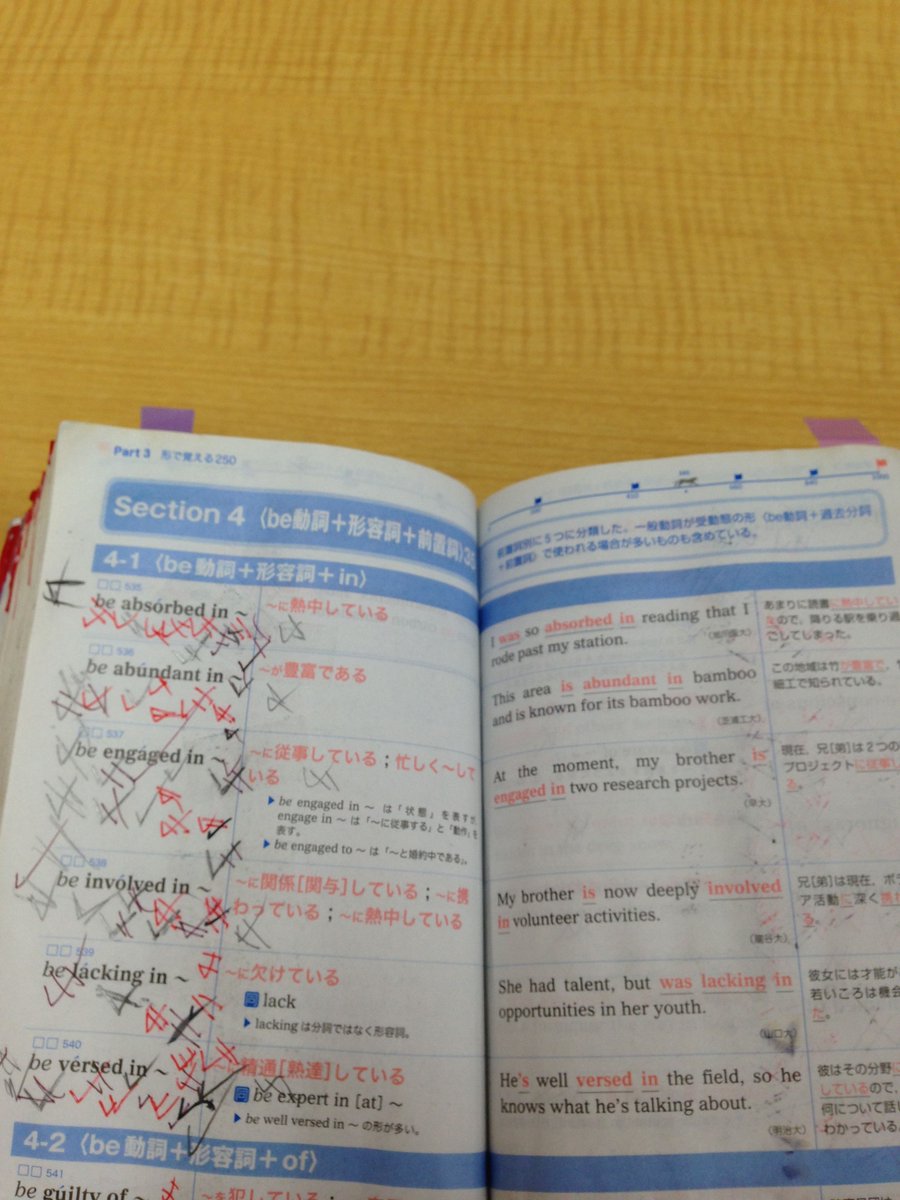 Part 3 形で覚える250
Section 4 〈be動詞＋形容詞＋前置詞〉
4-1 〈be動詞＋形容詞＋in〉
□□ 535
be absórbed in ～
～に熱中している
□□ 536
be abúndant in ～
～が豊富である
537
be engáged in ～
～に従事している；忙しく～して
いる
▶ be engaged in ～ は「状態」を表すが,
engage in ～ は「～に従事する」と「動作」を
表す。
▶ be engaged to ～ は「～と婚約中である」。
□□ 538
be invólved in ～
～に関係[関与]している；～に携
わっている；～に熱中している
□□ 539
be lácking in ～
～に欠けている
同 lack
▶ lacking は分詞ではなく形容詞。
□□ 540
be vérsed in ～
～に精通[熟達]している
同 be expert in [at] ～
▶ be well versed in ～ の形が多い。
4-2 〈be動詞＋形容詞＋of〉
□□ 541
be guílty of ～
前置詞別に5つに分類した。一般動詞が受動態の形〈be動詞＋過去分詞
＋前置詞〉で使われる場合が多いものも含めている。
I was so absorbed in reading that I
rode past my station.
あまりに読書に熱中してい
ので，降りる駅を乗り過
ごしてしまった。
This area is abundant in bamboo
and is known for its bamboo work.
（芝浦工大）
この地域は竹が豊富で，
細工で知られている。
At the moment, my brother is
engaged in two research projects.
現在，兄[弟]は2つの
プロジェクトに従事し
る。
My brother is now deeply involved
in volunteer activities.
（龍谷大）
兄[弟]は現在，ボラ
ア活動に深く携
る。
She had talent, but was lacking in
opportunities in her youth.
（山口大）
彼女には才能が
若いころは機会
た。
He's well versed in the field, so he
knows what he's talking about.
（明治大）
彼はその分野に
しているので，
何について話し
わかっている。